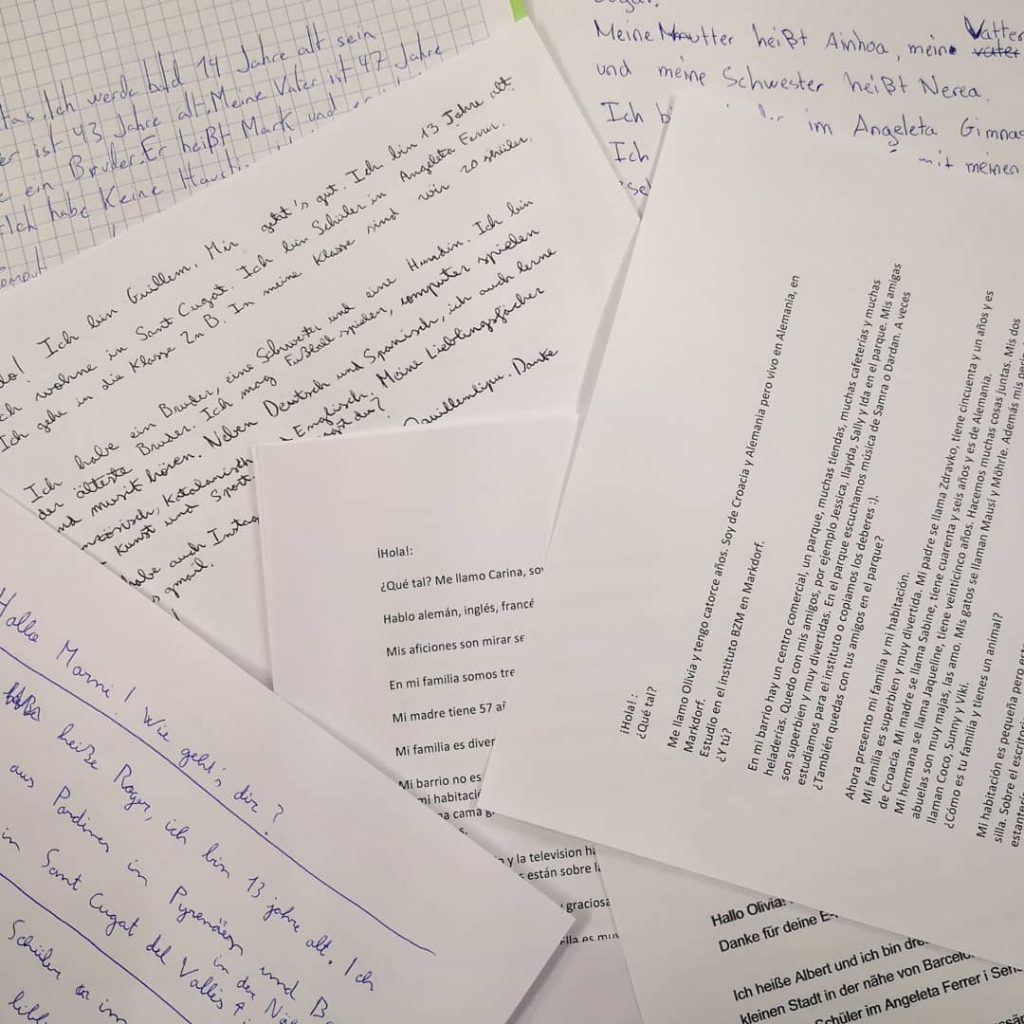 Ich werde bald 14 Jahre alt sein
ist 43 Jahre alt. Meine Vater ist 47 Jahre
ein Bruder. Er heißt Mark und
Ich habe Keine
Meine Mutter heißt Ainhoa, meine Vatter
und meine Schwester heißt Nerea.
Ich im Angeleta
Ich mit meinen
Ich bin Guillem. Mir geht's gut. Ich bin 13 Jahre alt.
Ich wohne in Sant Cugat. Ich bin Schüler in Angeleta Ferrer.
Ich gehe in die Klasse 2n B. In meine Klasse sind wir 20
Ich habe ein Bruder, eine Schwester und eine Hundin. Ich bin
der älteste Bruder. Ich mag Fußball spielen, computer spielen
und musik hören. Neben Deutsch und Spanisch, ich auch lerne
Katalanisch Englisch. Meine Lieblingsfächer
Kunst und Sport. du?
habe auch Danke
gmail.
¡Hola!:
¿Qué tal? Me llamo Carina,
Hablo alemán, inglés,
Mis aficiones son mirar
En mi familia somos
Mi madre tiene 57
Mi familia es
Mi barrio no es
mi
cama
y la television
están sobre
y
¡Hola!:
¿Qué tal?
Me llamo Olivia y tengo catorce años. Soy de Croacia y Alemania pero vivo en Alemania, en
Markdorf.
Estudio en el instituto BZM en Markdorf.
¿Y tú?
En mi barrio hay un centro comercial, un parque, muchas tiendas, muchas cafeterías y muchas
heladerías. Quedo con mis amigos, por ejemplo Jessica, Ilayda, Sally y Ida en el parque. Mis amigas
son superbien y muy divertidas. En el parque escuchamos música de Samra o Dardan. A veces
estudiamos para el instituto o copiamos los deberes :).
¿También quedas con tus amigos en el parque?
Ahora presento mi familia y mi habitación.
Mi familia es superbien y muy divertida. Mi padre se llama Zdravko, tiene cincuenta y un años y es
de Croacia. Mi madre se llama Sabine, tiene cuarenta y seis años y es de Alemania.
Mi hermana se llama Jaqueline, tiene veinticinco años. Hacemos muchas cosas juntas. Mis dos
abuelas son muy majas, las amo. Mis gatos se llaman Mausi y Möhrle. Además mis
llaman Coco, Sunny y Viki.
¿Cómo es tu familia y tienes un animal?
Mi habitación es pequeña pero
silla. Sobre el
Hallo Marni! Wie geht's dir?
heiße Roger, ich bin 13 jahre alt. Ich
aus Pardines in und
in Sant Cugat del Vallès in der
Schüler im
Hallo Olivia!
Danke für deine
Ich heiße Albert und ich bin
kleinen Stadt in der nähe von
Schüler im Angeleta Ferrer i